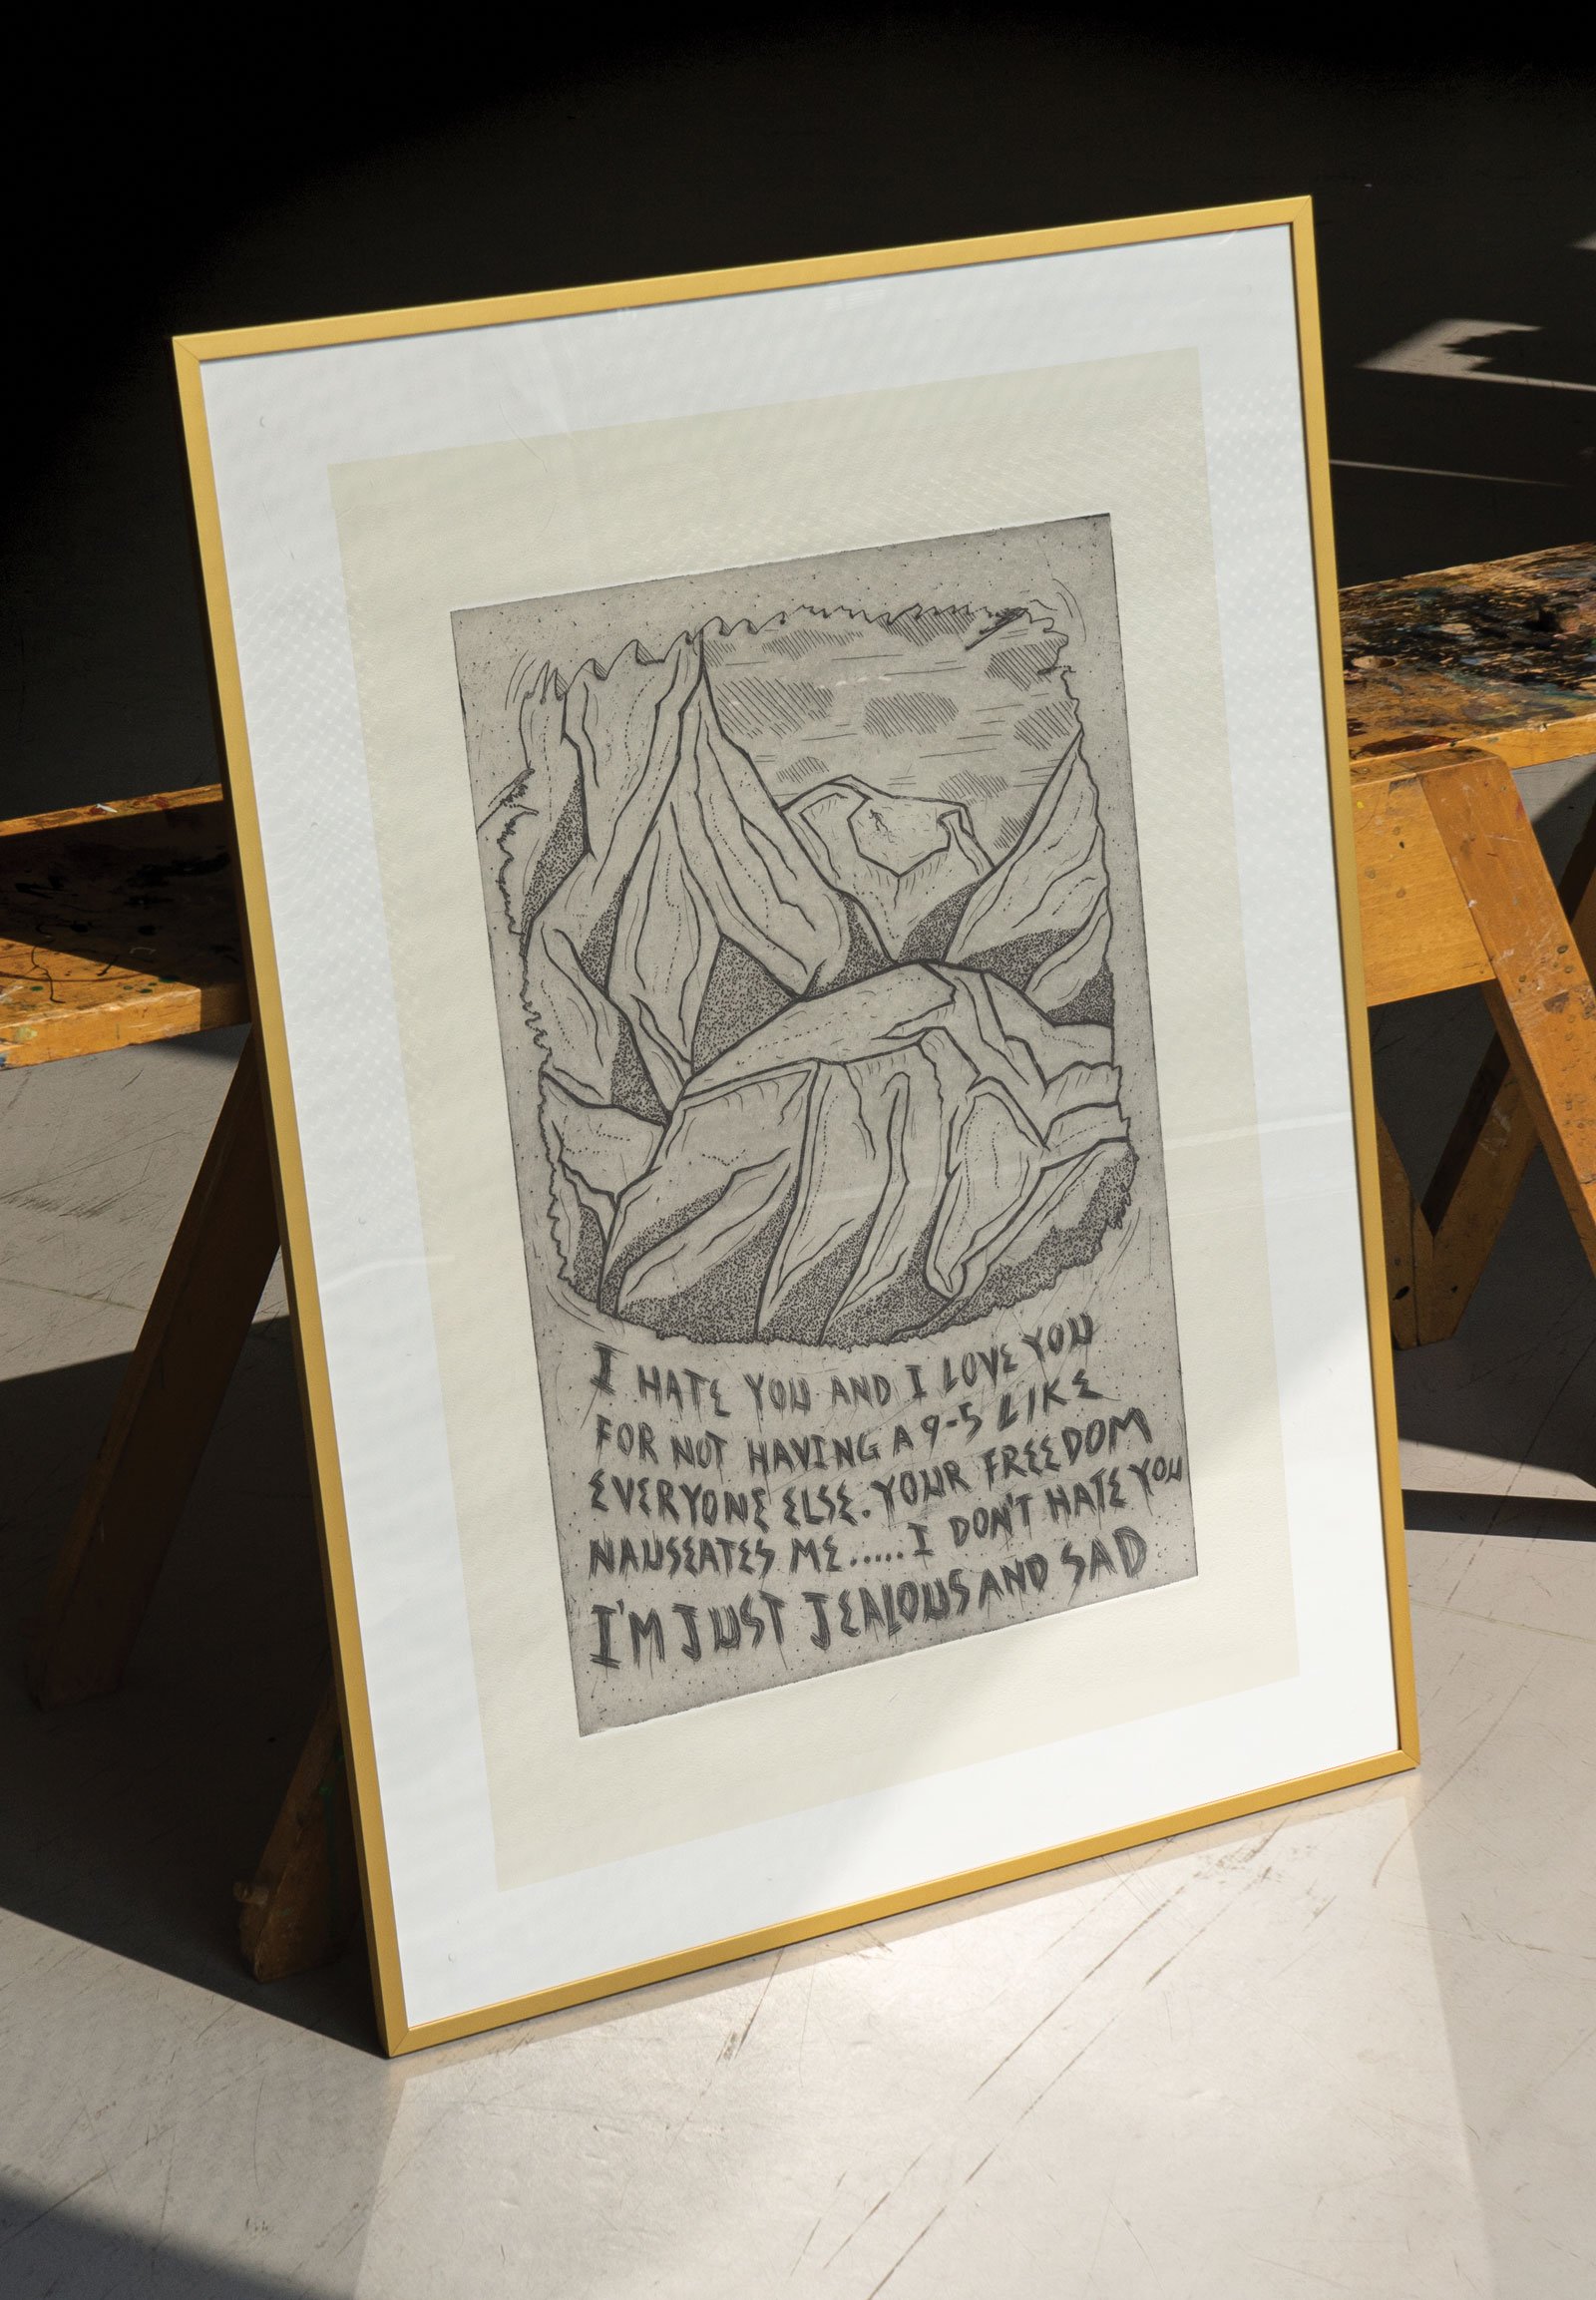 I HATE YOU AND I LOVE YOU
FOR NOT HAVING A 9-5 LIKE
EVERYONE ELSE. YOUR FREEDOM
NAUSEATES ME.....I DON'T HATE YOU
I'M JUST JEALOUS AND SAD